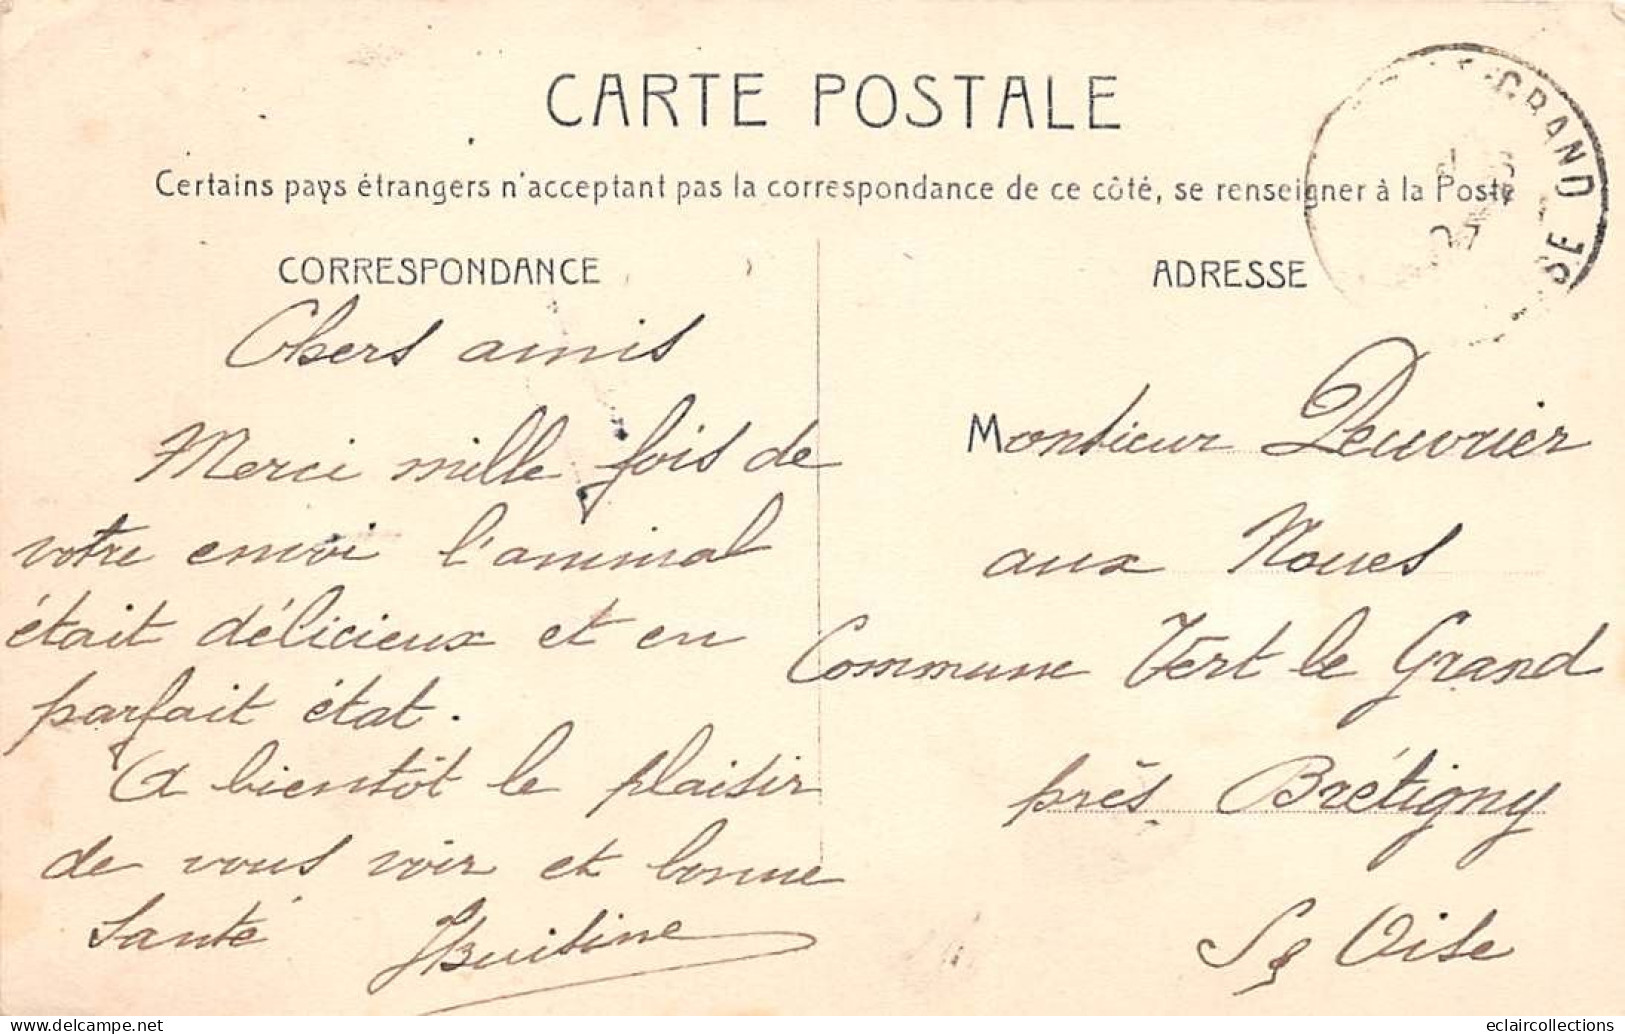 CARTE POSTALE
Certains pays étrangers n'acceptant pas la correspondance de ce côté, se renseigner à la Poste
CORRESPONDANCE
Chers amis
Merci mille fois de
votre envoi l'animal
était délicieux et en
parfait état.
A bientôt le plaisir
de vous voir et bonne
Santé
ADRESSE
Monsieur Leuvrier
aux Noues
Commune Vert le Grand
près Brétigny
S & Oise
GRAND
eclaircollections